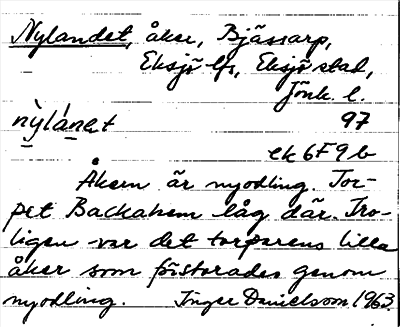 Nylandet, åker, Bjässarp,
Eksjö lfs, Eksjö stad,
Jönk. l.
nỳlánet 97
ek 6F9b
Åkern är nyodling. Tor-
pet Backahem låg där. Tro-
ligen var det torparens lilla
åker som förstorades genom
nyodling. Inger Danielsson 1963.